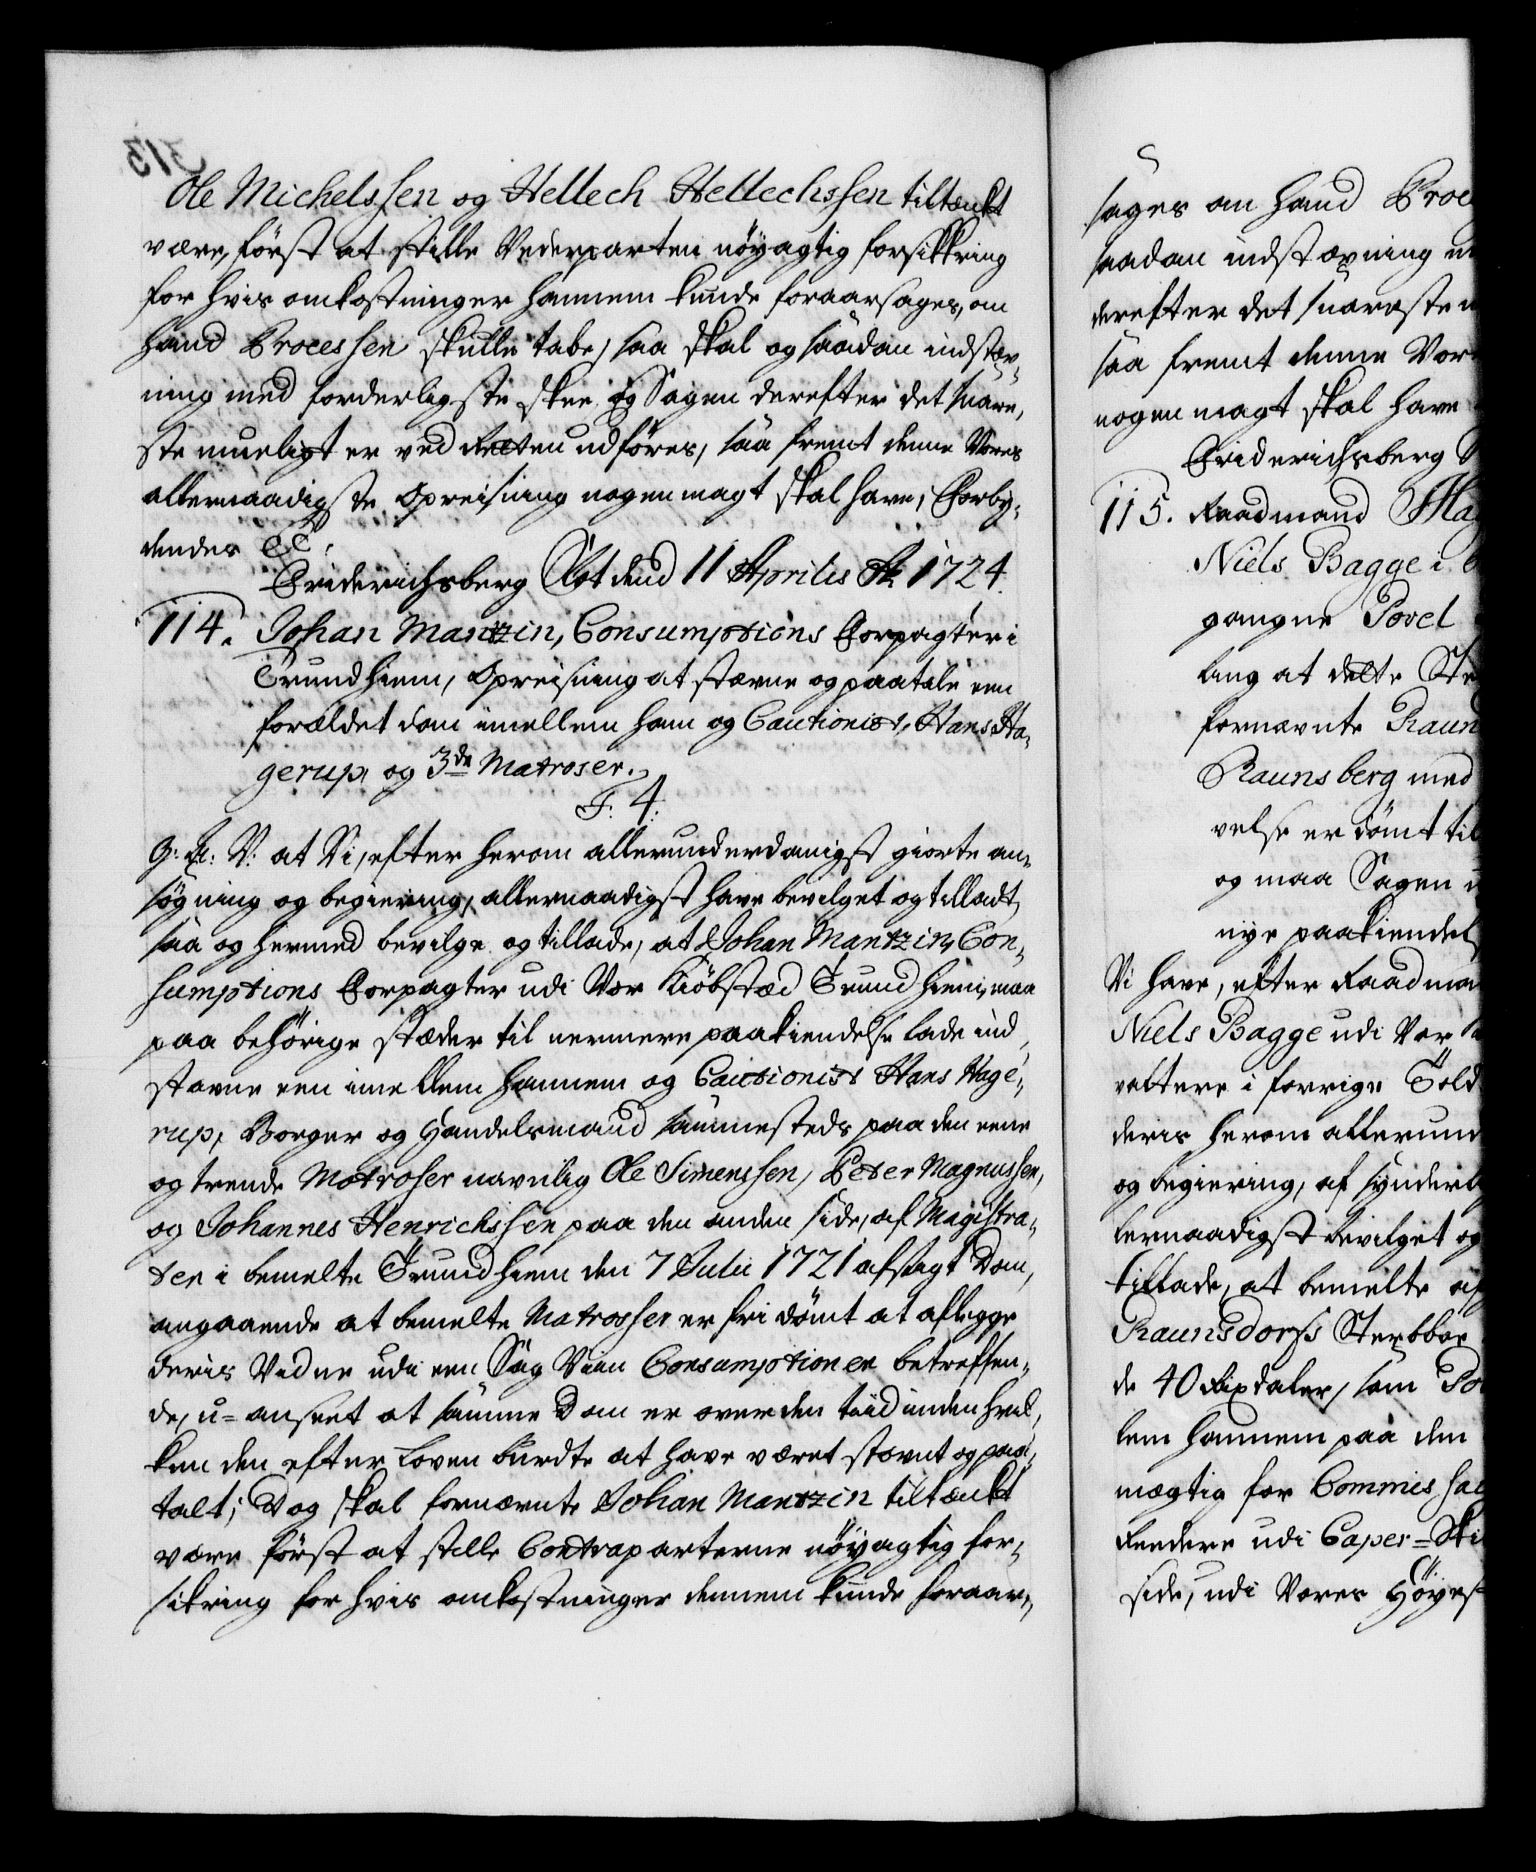 313
Ole Michelssen og Hellech Hellechssen tiltænkt
være, først at stille Vederparten nøyagtig forsikkring
for hvis omkostninger hannem kunde foraarsages, om
hand Processen skulle tabe, saa skal og saadan indstæv-
ning med forderligste skee, og Sagen derefter det snare,
ste mueligt er ved Retten udføres, saa fremt denne Vores
allernaadigste Opreisning nogen magt skal have, Forby,
dendes etc:
Friderichsberg Slot dend 11 Aprilis Ao 1724.
114. Johan Mantzin, Consumptions Forpagter i
Trundhiem, Opreisning at stævne og paatale een
forældet dom imellem ham og Cautionist, Hans Ha-
gerup, og 3de Matroser.
F: 4.
G: A: V: at Vi, efter herom allerunderdanigst giorte an-
søgning og begiering, allernaadigst have bevilget og tilladt,
saa og hermed bevilge og tillade, at Johan Mantzin, Con-
sumptions Forpagter udi Vor Kiøbstæd Trundhiem, maa
paa behørige stæder til nermere paakiendelse lade ind,
stævne een imellem hannem og Cautionist Hans Hage-
rup, Borger og Handelsmand sammesteds paa den eene
og trende Matroser navnlig Ole Simenssen, Peter Magnussen,
og Johannes Henrichssen paa den anden side, af Magistra-
ten i bemelte Trundhiem den 7 Julii 1721 afsagt Dom,
angaaende at bemelte Matrosser er fri dømt at aflegge
deris Vidne udi een Sag Viin Consumptionen betreffen-
de, u-anseet at samme Dom er over den tiid inden hvil,
ken den efter Loven burdte at have været stævnt og paa-
talt; Dog skal fornævnte Johan Mantzin tiltænkt
være først at stille Contraparterne nøyagtig for-
sikring for hvis omkostninger dennem kunde foraar-
sages om hand Proce
saadan indstævning m
derefter det snareste m
saa fremt denne Vor
nogen magt skal have
Friderichsberg
115. Raadmand Hag
Niels Bagge i
gangne Povel
ling at dette St
fornævnte Raun
Raunsberg med
velse er dømt til
og maa Sagen
nye paakiendel
Vi have, efter Raadma
Niels Bagge udi Vor
valtere i forrige Told
deris herom allerund
og begiering, af synderl
lernaadigst bevilget og
tillade, at bemelte af
Raunsdorfs Sterbboe
de 40 Rixdaler, som Po
lem hannem paa den
mægtig for Commissa
Reedere udi Caper-Ski
side, udi Vores Høyes